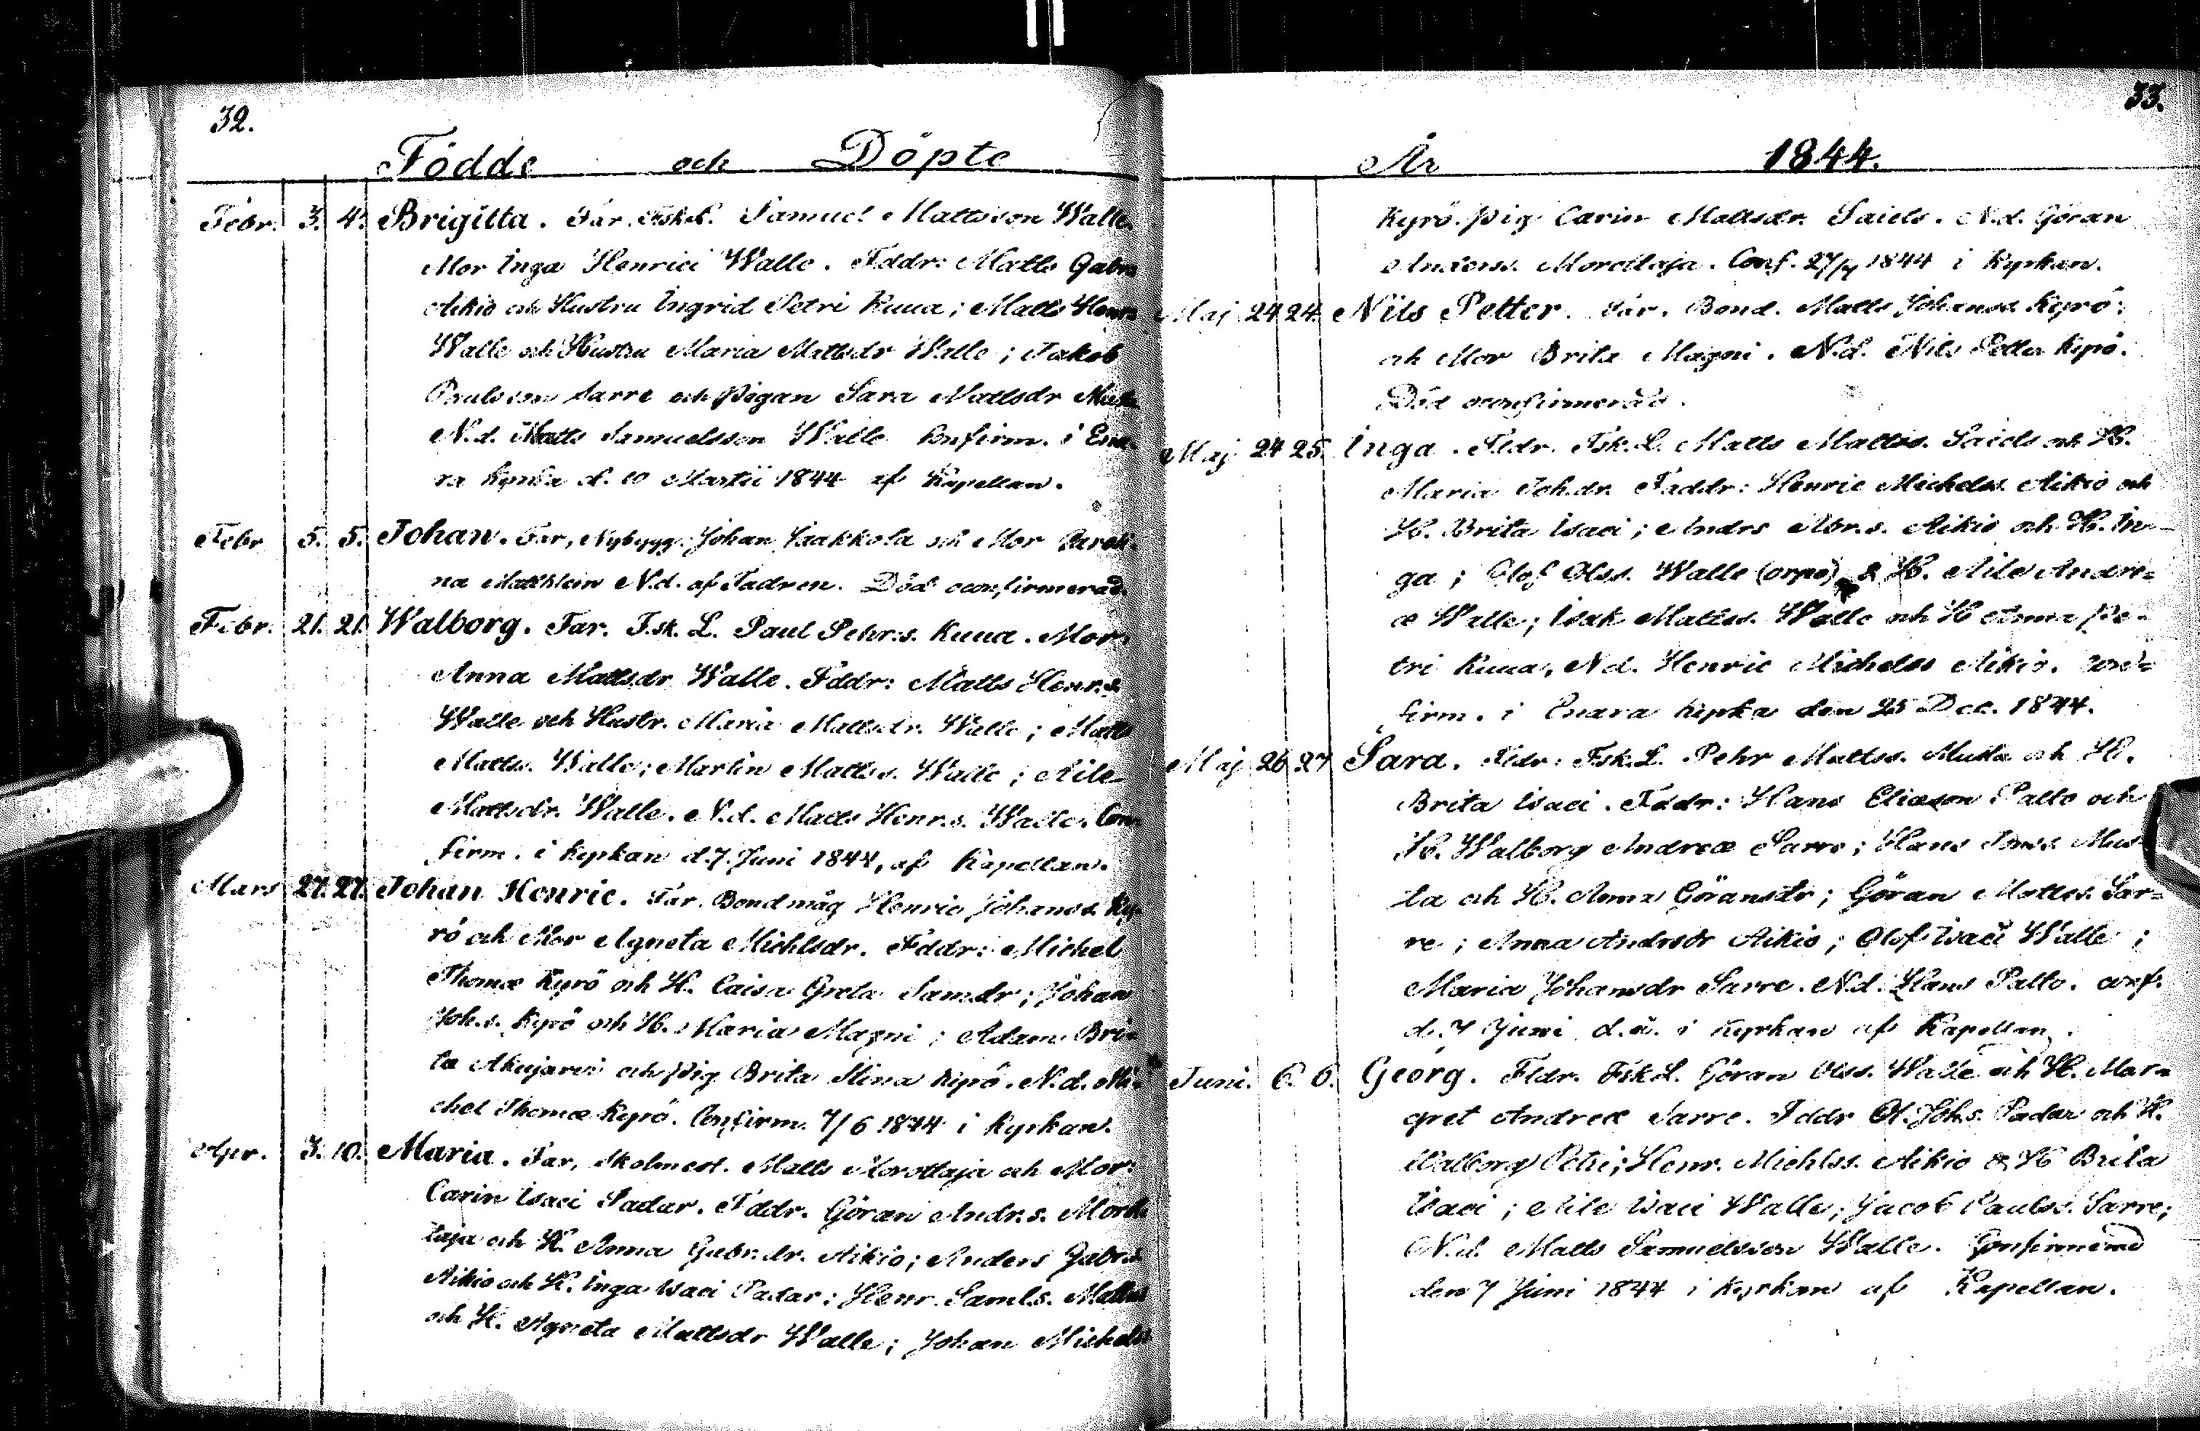 32.
Födde och Döpte
Febr. 3. 4. Brigitta. Far, Fisk.L. Samuel Mattsson Walle.
Mor Inga Henrici Walle. Fddr: Matts Gabrs
Aikio och Hustru Ingrid Petri Kuua; Matts Henrs
Walle och Hustru Maria Mattsdr Walle; Jakob
Paulsson Sarre och Pigan Sara Mattsdr
N.d. Matts Samuelsson Walle Confirm. i Ena-
ra kyrka d. 10 Martii 1844 af Kapellan.
Febr. 5. 5. Johan. Far, Nybygg. Johan Saakkola och Mor
na N.d. af Fadren. Död oconfirmerad.
Febr. 21. 21. Walborg. Far. F.sk. L. Paul Pehr.s. Kuua. Mor.
Anna Mattsdr Walle. Fddr: Matts Henr.s.
Walle och Hustr. Maria Mattsdr. Walle; Matts
Matts. Walle; Martin Matts.s. Walle; Aile
Mattsdr. Walle. N.d. Matts Henr.s. Walle. Con-
firm. i kyrkan d. 7. Juni 1844, af Kapellan.
Mars 27. 27. Johan Henric. Far. Bondmåg Henric Johanss. Ky-
rö och Mor Agneta Michlsdr. Fddr: Michel
Thomæ Kyrö och H. Caisa Greta Sam.dr; Johan
Joh.s. Kyrö och H. Maria Magni; Adam Bri-
ta Akujarvi och Pig Brita Stina Kyrö. N.d. Mi-
chel Thomæ Kyrö. Confirm. 7/6 1844 i kyrkan.
Apr. 3. 10. Maria. Far, Skolmest. Matts Morottaja och Mor:
Carin Isaci Padar. Fddr. Göran Andr.s. Morot-
taja och H. Anna Gabr.dr. Aikio; Anders Gabr.s
Aikio och H. Inga Isaci Padar; Henr. Saml.s. Mattus
och H. Agneta Mattsdr Walle; Johan Michels
33.
År 1844.
Kyrö. Pig Carin Mattsdr. Saiels. N.d. Göran
Anderss. Morottaja. Conf. 27/4 1844 i kyrkan.
Maj 24 24. Nils Petter. Far. Bond. Matts Johanss. Kyrö:
och Mor Brita Magni. N.d. Nils Petter Kyrö.
Död oconfirmerad.
Maj 24 25. Inga. Fldr. Fsk.L. Matts Mattss. Saiels och H.
Maria Joh.dr. Faddr: Henric Michelss. Aikio och
H. Brita Isaci; Andrs Abr.s. Aikio och H. In-
ga; Olof Olss. Walle (orpo) & H. Aile Andre-
æ Walle; Isak Mattss. Walle och H Anna Pe-
tri Kuua, N.d. Henric Michelss Aikio. con-
firm. i Enara kyrka den 25 Dec. 1844.
Maj 26 27 Sara. Fldr: Fsk.L. Pehr Mattss. Musta och H.
Brita Isaci. Fddr: Hans Eliasson Palto och
H. Walborg Andreæ Sarre; Hans Mus-
ta och H. Anna Göransdr; Göran Mattss. Sar-
re; Anna Andrsdr Aikio; Olof Isaci Walle;
Maria Johansdr Sarre. N.d. Hans Palto. conf.
d. 7 Juni d.å. i kyrkan af Kapellan.
Juni. 6. 6. Georg. Fldr. Fsk.L. Göran Olss. Walle och H. Mar-
gret Andreæ Sarre. Fddr Ol. Joh.s. Padar och H.
Walborg Petri; Henr. Michlss. Aikio & H Brita
Isaci; Aile Isaci Walle; Jacob Paulss. Sarre;
N.d. Matts Samuelsson Walle. Confirmerad
den 7 Juni 1844 i kyrkan af Kapellan.